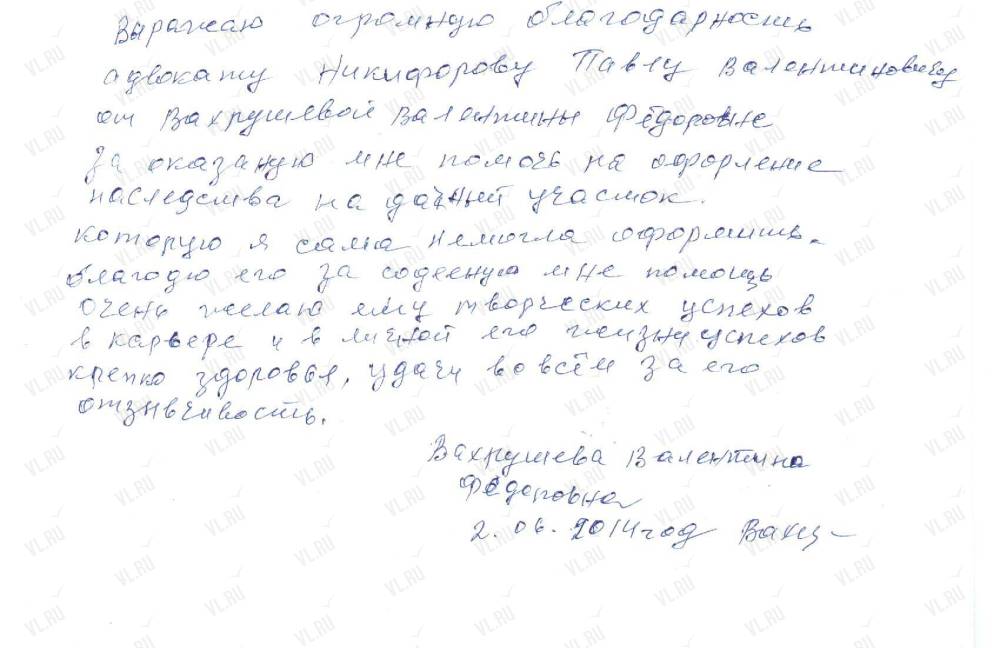 Выражаю огромную благодарность
адвокату Никифорову Павлу Валентиновичу
от Вахрушевой Валентины Фёдоровне
За оказаную мне помочь на офорление
наследства на дачный участок.
которую я сама немогла оформить.
благодю его за содееную мне помощь
очень желаю ему творческих успехов
в карьере и в личной его жизни успехов
крепко здоровья, удачи во всём за его
отзывчивость.
Вахрушева Валентина
Фёдоровна
2. 06. 2014 год